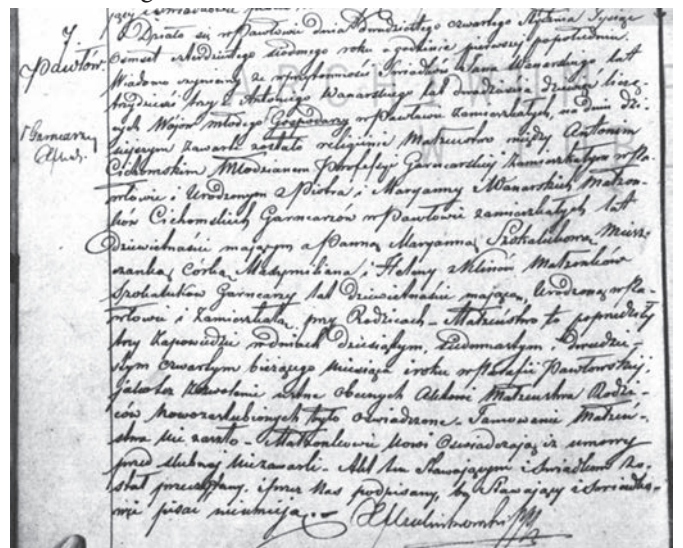 7.
Pawłów.
Działo się w Pawłowie dnia dwudziestego czwartego Stycznia Tysiąc
Ośmset siódmego roku o godzinie pierwszej popołudniu.
Wiadomo czynimy że w przytomności Świadków Jana Wanarskiego lat
trzydzieści trzy i Antoniego Wanarskiego lat dwadzieścia dziewięć liczą-
cych Wójów młodego Gospodarzy w Pawłowie zamieszkałych, na dniu dzi-
siejszym zawarte zostało religijnie Małżeństwo między Antonim
Cichomskim Młodzianem Professyi Garncarskiej zamieszkałym w Pa-
włowie i Urodzonym z Piotra i Maryanny z Wanarskich Małżon-
ków Cichomskich Garncarzów w Pawłowie zamieszkałych lat
dziewiętnaście mającym a Panną Maryanną Szokalukową Miesz-
czanką Córką Maxymiliana i Heleny z Małżonków
Szokaluków Garncarzy lat dziewiętnaście mającą, Urodzoną w Pa-
włowie i zamieszkałą przy Rodzicach – Małżeństwo to poprzedziły
trzy Zapowiedzie w dniach dziesiątym, siedmnastym i dwudzie-
stym czwartym bieżącego miesiąca i roku w Parafii Pawłowskiej,
jako też zezwolenie ustne obecnych Aktowi Małżeństwa Rodzi-
ców Nowozaślubionych było oświadczone – Tamowanie Małżeń-
stwa nie zaszło – Małżonkowie Nowi Oświadczają iż umowy
przed ślubnej nie zawarli – Akt ten Stawającym i Świadkom zo-
stał przeczytany i przez Nas podpisany, bo Stawający i Świadko-
wie pisać nieumieją. –